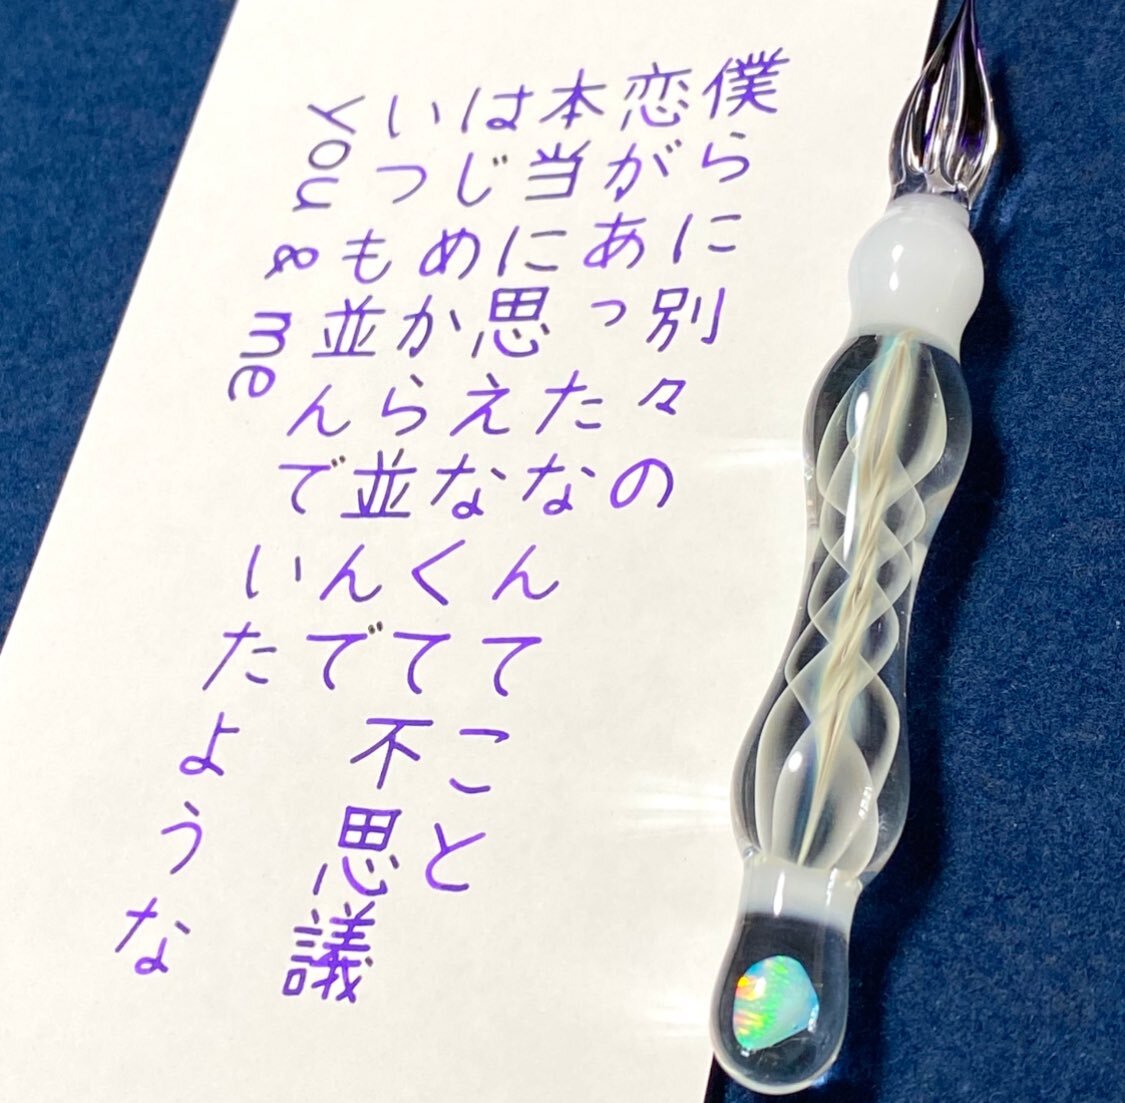 僕らに別々の
恋があったなんてこと
本当に思えなくて不思議
はじめから並んで
いつも並んでいたような
You & me